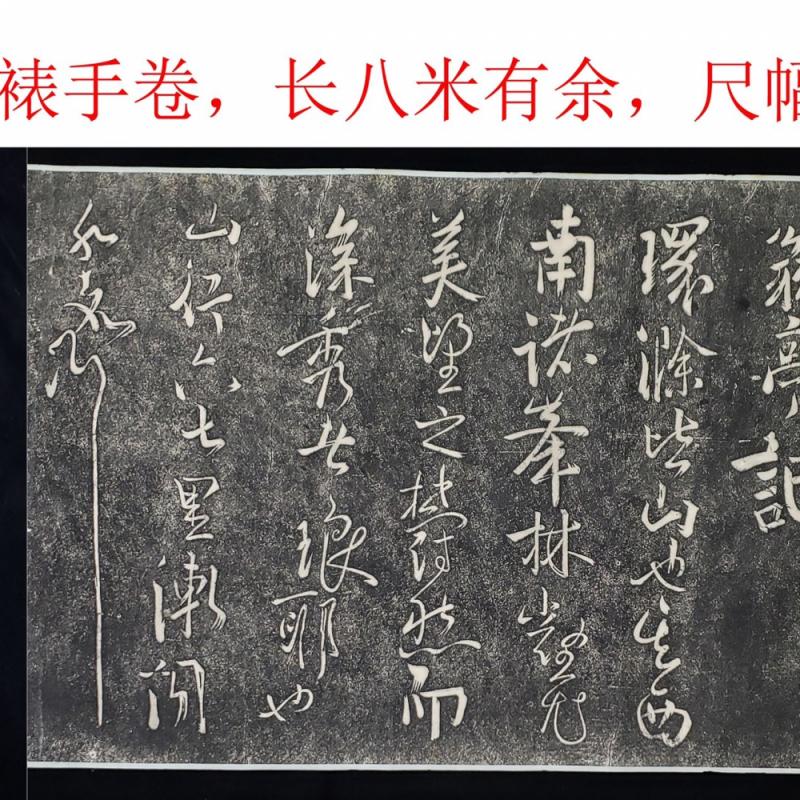 裱手卷，长八米有余，尺幅
翁亭記
環滁皆山也其西
南諸峯林壑尤
美望之蔚然而
深秀者琅耶也
山行六七里漸聞
水聲